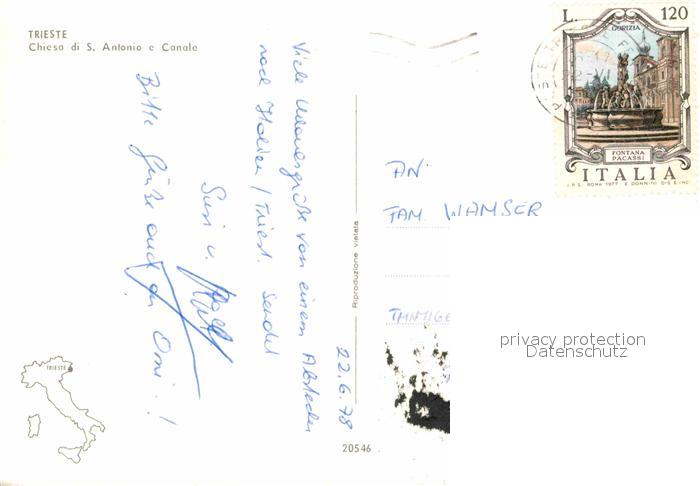 TRIESTE
Chiesa di S. Antonio e Canale
L. 120
GORIZIA
FONTANA
PACASSI
ITALIA
I.P.S. ROMA 1977 E. DONNINI DIS. E INC.
22.6.78
Viele Urlaubsgrüße von einem Abstecher
nach Italien / Triest. Sendet
Susi u.
Bitte Grüße auch an Omi!
Riproduzione vietata
20546
AN:
FAM. WAMSER
TRIESTE
privacy protection
Datenschutz